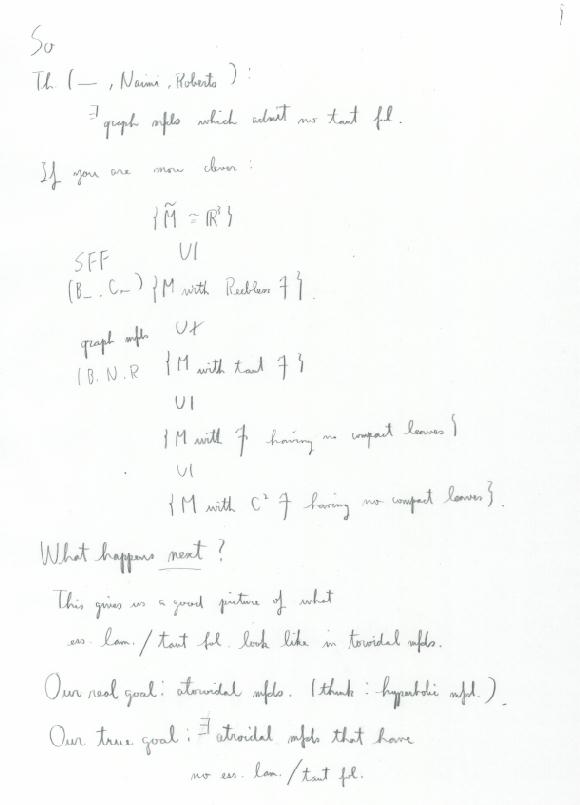 i
So
Th. ( — , Naimi, Roberts ) :
∃ graph mfds which admit no taut fol.
If you are more clever :
{ M̃ ≅ ℝ³ }
SFF U|
(B_, C_) { M with Reebless F }.
graph mfds U⊀
( B. N. R { M with taut F }
U|
{ M with F having no compact leaves }
U|
{ M with C² F having no compact leaves }.
What happens next ?
This gives us a good picture of what
ess. lam. / taut fol. look like in toroidal mfds.
Our real goal : atoroidal mfds. (think : hyperbolic mfd.).
Our true goal : ∃ atroidal mfds that have
no ess. lam. / taut fol.